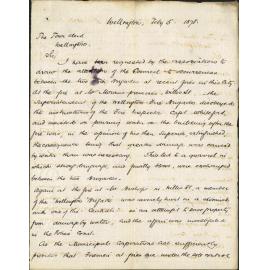 Wellington, Feby 15 1878.
The Town Clerk
Wellington.
Sir,
I have been requested by the associations to
draw the attention of the Council to occurrences
between the two Fire Brigades at recent fires in this City.
At the fire at Mr Moran's premises, Willis St. the
Superintendent of the Wellington Fire Brigade disobeyed
the instructions of the Fire Inspector Capt.
and continued pouring water on the building after the
fire was, in the opinion of his then Superior extinguished,
the consequence being that greater damage was caused by
water than was necessary. This led to a quarrel in
which strong language, and finally blows, were exchanged
between the two Brigades.
Again at the fire at Mr in Willis St, a member
of the Wellington Brigade was nearly hurt in a
with one of the "Central" in an attempt to save property
from damage by water, and the affair was investigated in
the Police Court.
As the Municipal Corporations Act sufficiently
provides that Firemen at fires are under the